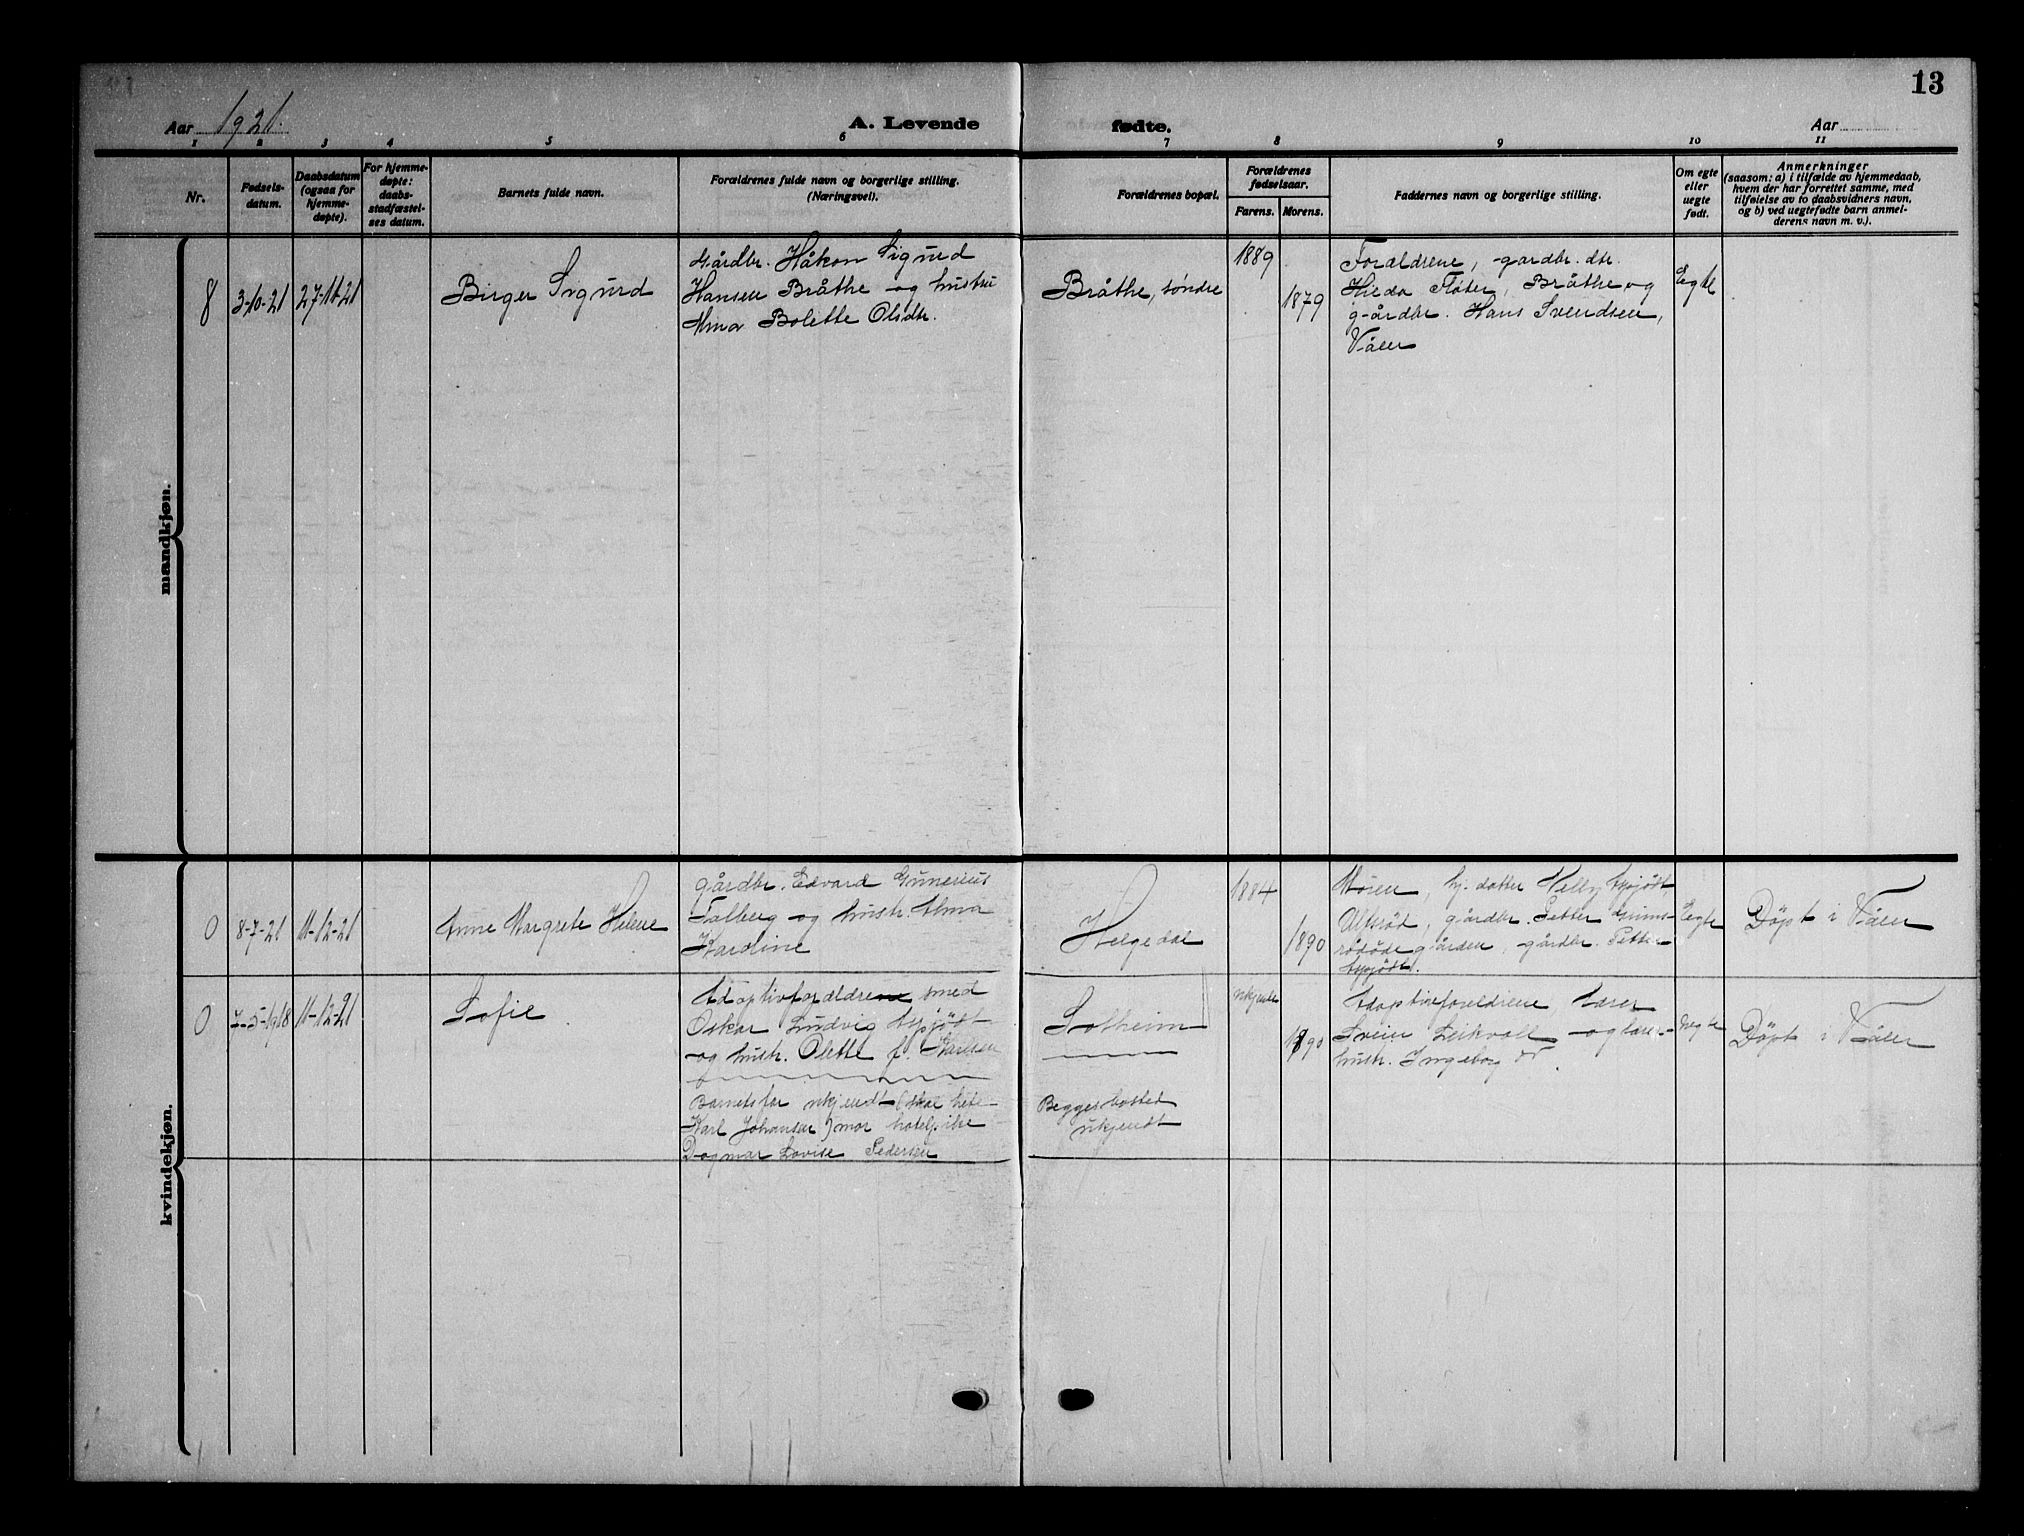 13
Aar 1921.
A. Levende
fødte.
Aar
1 2 3 4 5 6 7 8 9 10 11
Nr.
Fødsels-
datum.
Daabsdatum
(ogsaa for
hjemme-
døpte).
For hjemme-
døpte:
daabs-
stadfæstel-
ses datum.
Barnets fulde navn.
Forældrenes fulde navn og borgerlige stilling.
(Næringsvei).
Forældrenes bopæl.
Forældrenes
fødselsaar.
Farens. Morens.
Faddernes navn og borgerlige stilling.
Om egte
eller
uegte
født.
Anmerkninger
(saasom: a) i tilfælde av hjemmedaab,
hvem der har forrettet samme, med
tilføielse av to daabsvidners navn,
og b) ved uegtefødte barn anmel-
derens navn m. v.).
mandkjøn.
8
3-10-21
27-11-21
Birger Sigurd
Gårdbr. Håkon Sigurd
Hansen Bråthe og hustru
Alma Bolette Olsdtr.
Bråthe, søndre
1889
1879
Forældrene, gardbr. dtr.
Hilda Fløter, Bråthe og
gårdbr. Hans Svendsen,
Våler
Egte
kvindekjøn.
0
8-7-21
11-12-21
Anne Margrete Helene
gårdbr. Edvard Gunerius
Talberg og hustr. Alma
Karoline
Helgedal
1884
1890
Moren, hj. datter
gårdbr. Petter
gården, gårdbr. Petter
Egte
Døpt i Våler
0
7-5-1918
11-12-21
Sofie
Adoptivforældre smed
Oskar Ludvig
og hustr. Olette f. Karlsen
Barnets far ukjendt (skal hete
Karl Johansen) mor hotelpike
Dagmar Lovise Pedersen
Solheim
Begges bosted
ukjendt
ukjendt
1890
Adoptivforeldrene, lærer
Svein Leikvoll og lærer-
hustr. Ingeborg
Uegte
Døpt i Våler